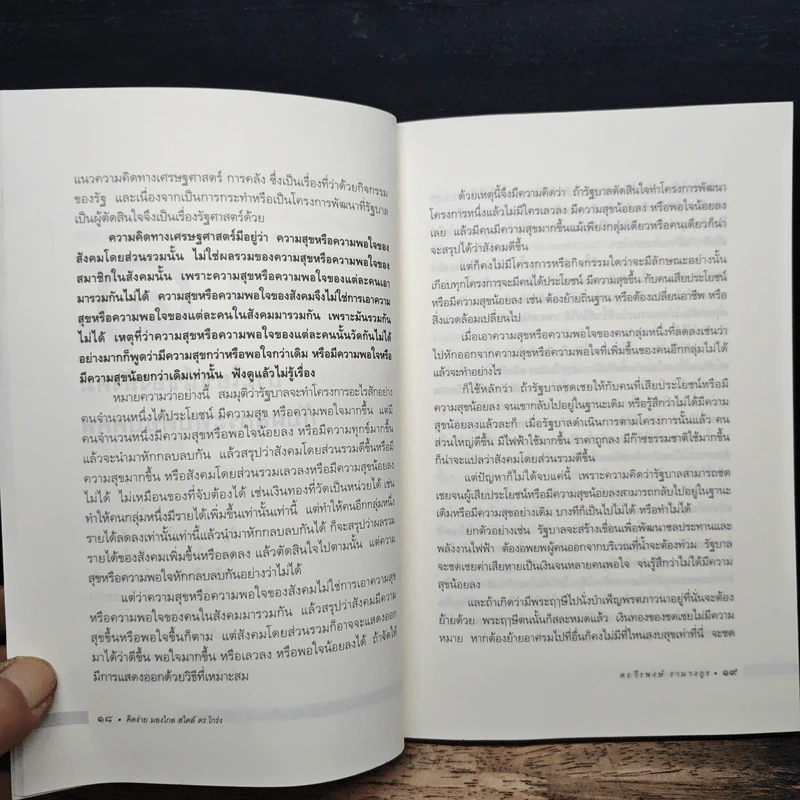 แนวความคิดทางเศรษฐศาสตร์ การคลัง ซึ่งเป็นเรื่องที่ว่าด้วยกิจกรรม
ของรัฐ และเนื่องจากเป็นการกระทำหรือเป็นโครงการพัฒนาที่รัฐบาล
เป็นผู้ตัดสินใจจึงเป็นเรื่องรัฐศาสตร์ด้วย
ความคิดทางเศรษฐศาสตร์มีอยู่ว่า ความสุขหรือความพอใจของ
สังคมโดยส่วนรวมนั้น ไม่ใช่ผลรวมของความสุขหรือความพอใจของ
สมาชิกในสังคมนั้น เพราะความสุขหรือความพอใจของแต่ละคนเอา
มารวมกันไม่ได้ ความสุขหรือความพอใจของสังคมจึงไม่ใช่การเอาความ
สุขหรือความพอใจของแต่ละคนในสังคมมารวมกัน เพราะมันรวมกัน
ไม่ได้ เหตุที่ว่าความสุขหรือความพอใจของแต่ละคนนั้นวัดกันไม่ได้
อย่างมากก็พูดว่ามีความสุขกว่าหรือพอใจกว่าเดิม หรือมีความพอใจหรือ
มีความสุขน้อยกว่าเดิมเท่านั้น ฟังดูแล้วไม่รู้เรื่อง
หมายความว่าอย่างนี้ สมมุติว่ารัฐบาลจะทำโครงการอะไรสักอย่าง
คนจำนวนหนึ่งได้ประโยชน์ มีความสุข หรือความพอใจมากขึ้น แต่มี
คนจำนวนหนึ่งมีความสุขหรือพอใจน้อยลง หรือมีความทุกข์มากขึ้น
แล้วจะนำมาหักกลบลบกัน แล้วสรุปว่าสังคมโดยส่วนรวมดีขึ้นหรือมี
ความสุขมากขึ้น หรือสังคมโดยส่วนรวมเลวลงหรือมีความสุขน้อยลง
ไม่ได้ ไม่เหมือนของที่จับต้องได้ เช่นเงินทองที่วัดเป็นหน่วยได้ เช่น
ทำให้คนกลุ่มหนึ่งมีรายได้เพิ่มขึ้นเท่านั้นเท่านี้ แต่ทำให้คนอีกกลุ่มหนึ่ง
รายได้ลดลงเท่านั้นเท่านี้แล้วนำมาหักกลบลบกันได้ ก็จะสรุปว่าผลรวม
รายได้ของสังคมเพิ่มขึ้นหรือลดลง แล้วตัดสินใจไปตามนั้น แต่ความ
สุขหรือความพอใจหักกลบลบกันอย่างว่าไม่ได้
แต่ว่าความสุขหรือความพอใจของสังคมไม่ใช่การเอาความสุข
หรือความพอใจของคนในสังคมมารวมกัน แล้วสรุปว่าสังคมมีความ
สุขขึ้นหรือพอใจขึ้นก็ตาม แต่สังคมโดยส่วนรวมก็อาจจะแสดงออก
มาได้ว่าดีขึ้น พอใจมากขึ้น หรือเลวลง หรือพอใจน้อยลงได้ ถ้าจัดให้
มีการแสดงออกด้วยวิธีที่เหมาะสม
๑๘ • คิดง่าย มองไกล สไตล์ ดร.โกร่ง
ด้วยเหตุนี้จึงมีความคิดว่า ถ้ารัฐบาลตัดสินใจทำโครงการพัฒนา
โครงการหนึ่งแล้วไม่มีใครเลวลง มีความสุขน้อยลง หรือพอใจน้อยลง
เลย แล้วมีคนมีความสุขมากขึ้นแม้เพียงกลุ่มเดียวหรือคนเดียวก็น่า
จะสรุปได้ว่าสังคมดีขึ้น
แต่ก็คงไม่มีโครงการหรือกิจกรรมใดว่าจะมีลักษณะอย่างนั้น
เกือบทุกโครงการจะมีคนได้ประโยชน์ มีความสุขขึ้น กับคนเสียประโยชน์
หรือมีความสุขน้อยลง เช่น ต้องย้ายถิ่นฐาน หรือต้องเปลี่ยนอาชีพ หรือ
สิ่งแวดล้อมเปลี่ยนไป
เมื่อเอาความสุขหรือความพอใจของคนกลุ่มหนึ่งที่ลดลงเช่นว่า
ไปหักออกจากความสุขหรือความพอใจที่เพิ่มขึ้นของคนอีกกลุ่มไม่ได้
แล้วจะทำอย่างไร
ก็ใช้หลักว่า ถ้ารัฐบาลชดเชยให้กับคนที่เสียประโยชน์หรือมี
ความสุขน้อยลง จนเขากลับไปอยู่ในฐานะเดิม หรือรู้สึกว่าไม่ได้มีความ
สุขน้อยลงแล้วละก็ เมื่อรัฐบาลดำเนินการตามโครงการนั้นแล้ว คน
ส่วนใหญ่ดีขึ้น มีไฟฟ้าใช้มากขึ้น ราคาถูกลง มีก๊าซธรรมชาติใช้มากขึ้น
ก็น่าจะแปลว่าสังคมโดยส่วนรวมดีขึ้น
แต่ปัญหาก็ไม่ได้จบแค่นี้ เพราะความคิดว่ารัฐบาลสามารถชด
เชยจนผู้เสียประโยชน์หรือมีความสุขน้อยลงสามารถกลับไปอยู่ในฐานะ
เดิมหรือมีความสุขอย่างเดิม บางทีก็เป็นไปไม่ได้ หรือทำไม่ได้
ยกตัวอย่างเช่น รัฐบาลจะสร้างเขื่อนเพื่อพัฒนาชลประทานและ
พลังงานไฟฟ้า ต้องอพยพผู้คนออกจากบริเวณที่น้ำจะต้องท่วม รัฐบาล
จะชดเชยค่าเสียหายเป็นเงินจนหลายคนพอใจ จนรู้สึกว่าไม่ได้มีความ
สุขน้อยลง
และถ้าเกิดว่ามีพระฤๅษีไปนั่งบำเพ็ญพรตภาวนาอยู่ที่นั่นจะต้อง
ย้ายด้วย พระฤๅษีตนนั้นก็สละหมดแล้ว เงินทองของชดเชยไม่มีความ
หมาย หากต้องย้ายอาศรมไปที่อื่นก็คงไม่มีที่ไหนสงบสุขเท่าที่นี่ จะชด
ดร.วีรพงษ์ รามางกูร • ๑๙